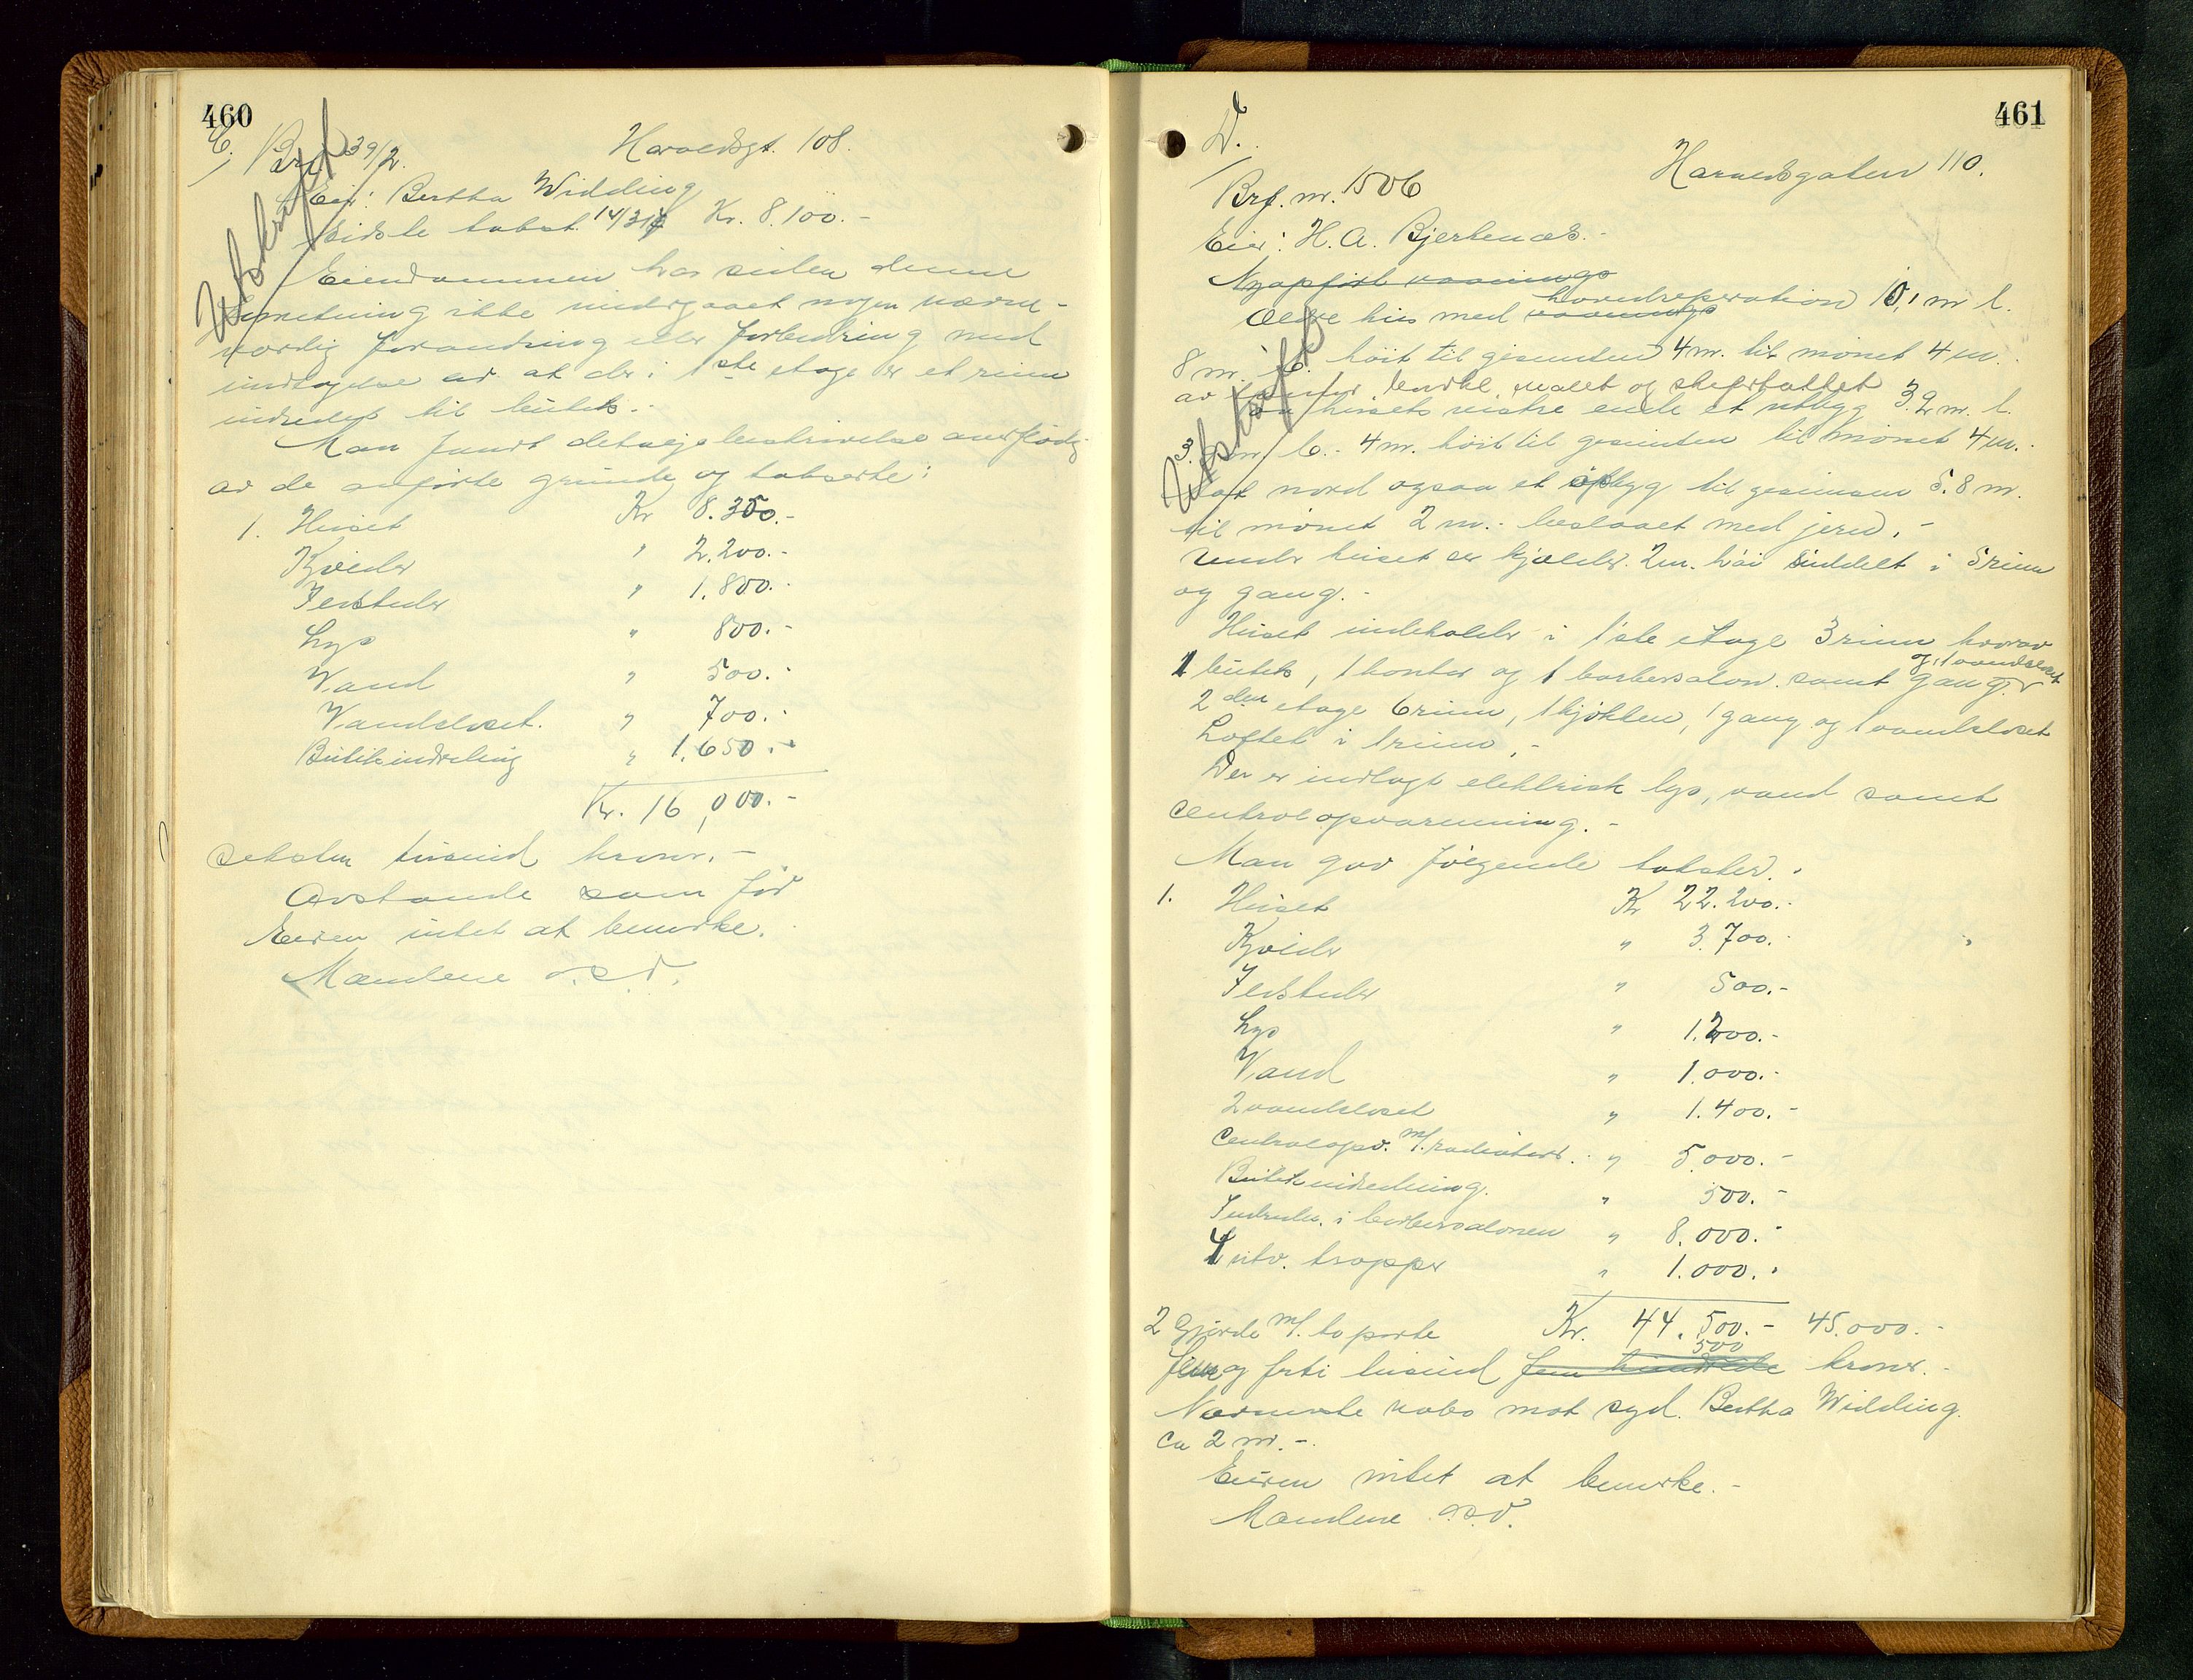 460
C.
Brf 39/2.
Haraldsgt. 108.
Utskrift
Eier: Bertha Widding
Sidste takst. 14/3 14 Kr. 8.100.-
Eiendommen har siden denne
forretning ikke undergaaet nogen nævne-
værdig forandring eller forbedring med
undtagelse av at der i 1ste etage er et rum
indredet til butik.-
Man fandt detaljebeskrivelse overflødig
av de anførte grunde og takserte:
1. Huset Kr 8.350.-
Kjelder " 2.200.-
Ildsteder " 1.800.-
Lys " 800.-
Vand " 500.-
Vandcloset. " 700.-
Butikindreding " 1.650.-
Kr. 16,000.-
Seksten tusind kroner.-
Avstande som før
Eieren intet at bemerke.
Mændene o.s.v.
461
D.
Brf. nr. 1506
Haraldsgaten 110.
Eier: H. A. Bjertenæs.-
Nyopført vaanings
Ældre hus med vaanings hovedreperation 10,1 m l.
8 m. b. høit til gesimsen 4 m. til mønet 4 m.
av tømmer, bordkl., malet og skifertækket
Utskrift
Paa husets vestre ende et utbygg 3.2 m. l.
3. m. b. - 4 m. høit til gesimsen til mønet 4 m.-
Mot nord ogsaa et opbygg til gesimsen 5.8 m.
til mønet 2 m.- beslaaet med jern.-
Under huset er kjælder. 2 m. høi inddelt i 5 rum
og gang.-
Huset indeholder i 1ste etage 3 rum hvorav
1 butik, 1 kontor og 1 barbersalon. samt gang. og 1 vandcloset
2den etage 6 rum, 1 kjøkken, 1 gang og 1 vandcloset
Loftet i 1 rum.-
Der er indlagt elektrisk lys, vand samt
centralopvarmning.-
Man gav følgende takster.-
1. Huset Kr 22.200.-
Kjelder " 3.700.-
Ildsteder " 500.-
Lys " 1.200.-
Vand " 1.000.-
2 vandcloset " 1.400.-
Centralopv. m/. radiatorer. " 5.000.-
Butikindredning. " 500.-
Indredn. i barbersalonen " 8.000.-
1 utv. trapper " 1.000.-
Kr. 44.500.- 45.000.-
2 Gjærde m/. to porte 500
fem og førti tusind fem hundrede kroner.-
Nærmeste nabo mot syd. Bertha Widding
ca 2 m.-
Eieren intet at bemerke.-
Mændene o.s.v.